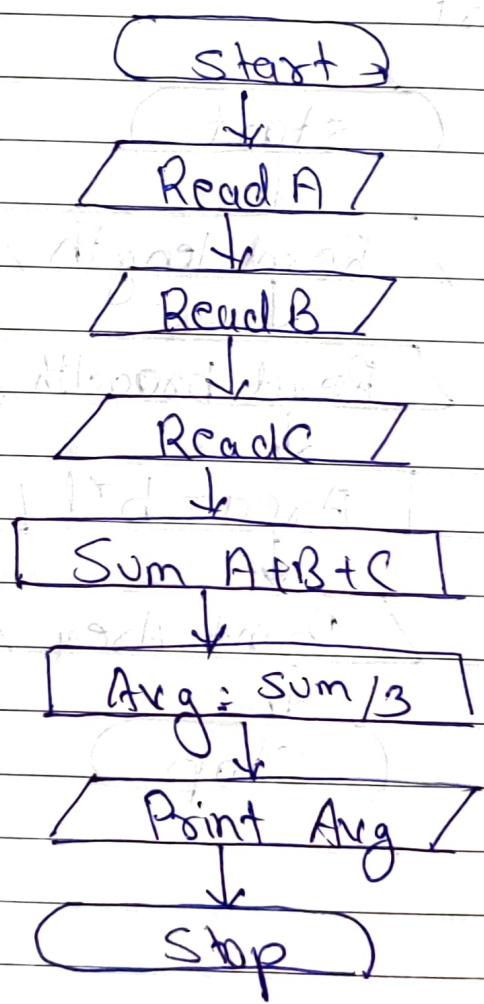 Start
Read A
Read B
Read C
Sum A+B+C
Avg = Sum /3
Print Avg
Stop